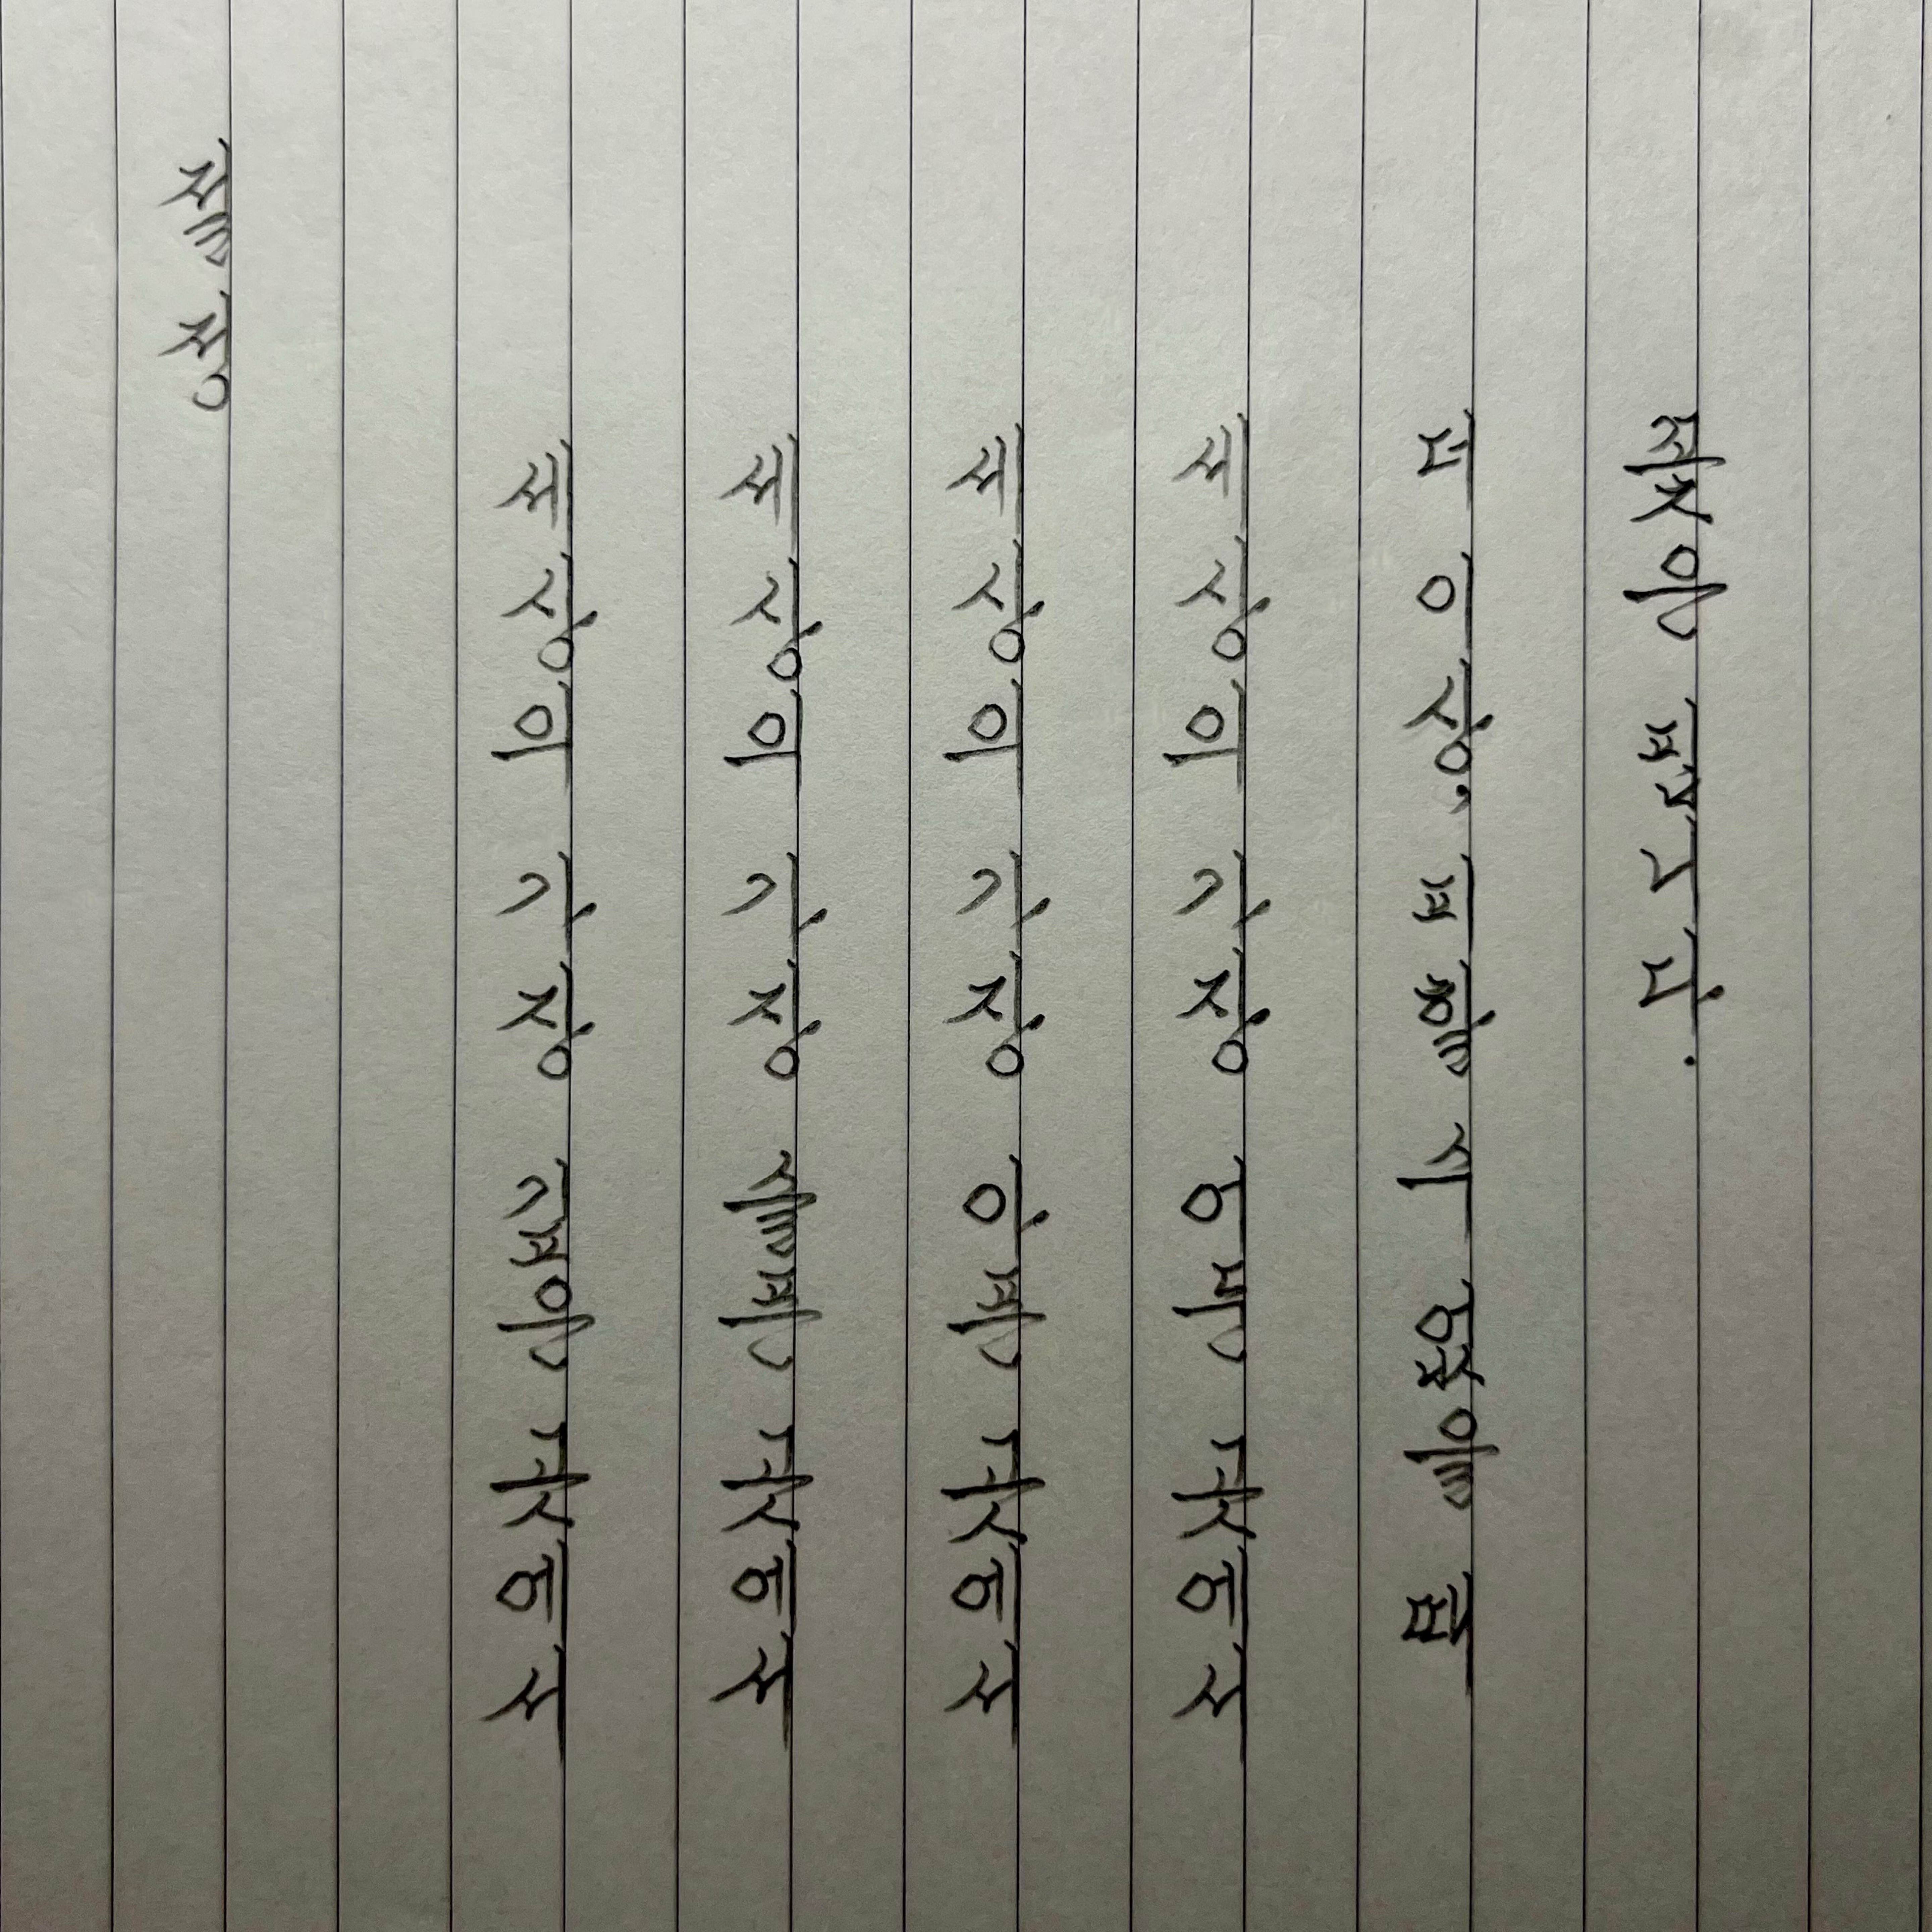 절정
세상의 가장 깊은 곳에서
세상의 가장 슬픈 곳에서
세상의 가장 아픈 곳에서
세상의 가장 어둔 곳에서
더 이상, 피할 수 없을 때
꽃은